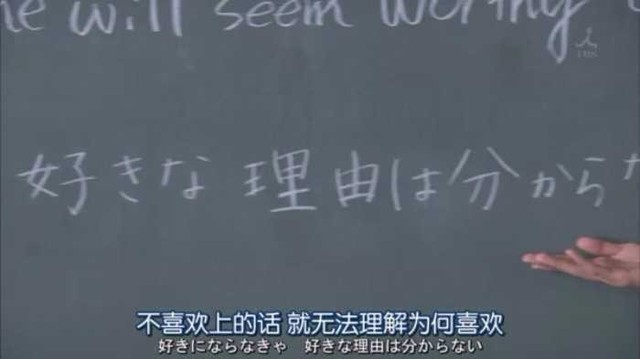 ne will seem worthy
TBS
好きな 理由は分から
不喜欢上的话 就无法理解为何喜欢
好きにならなきゃ 好きな理由は分からない